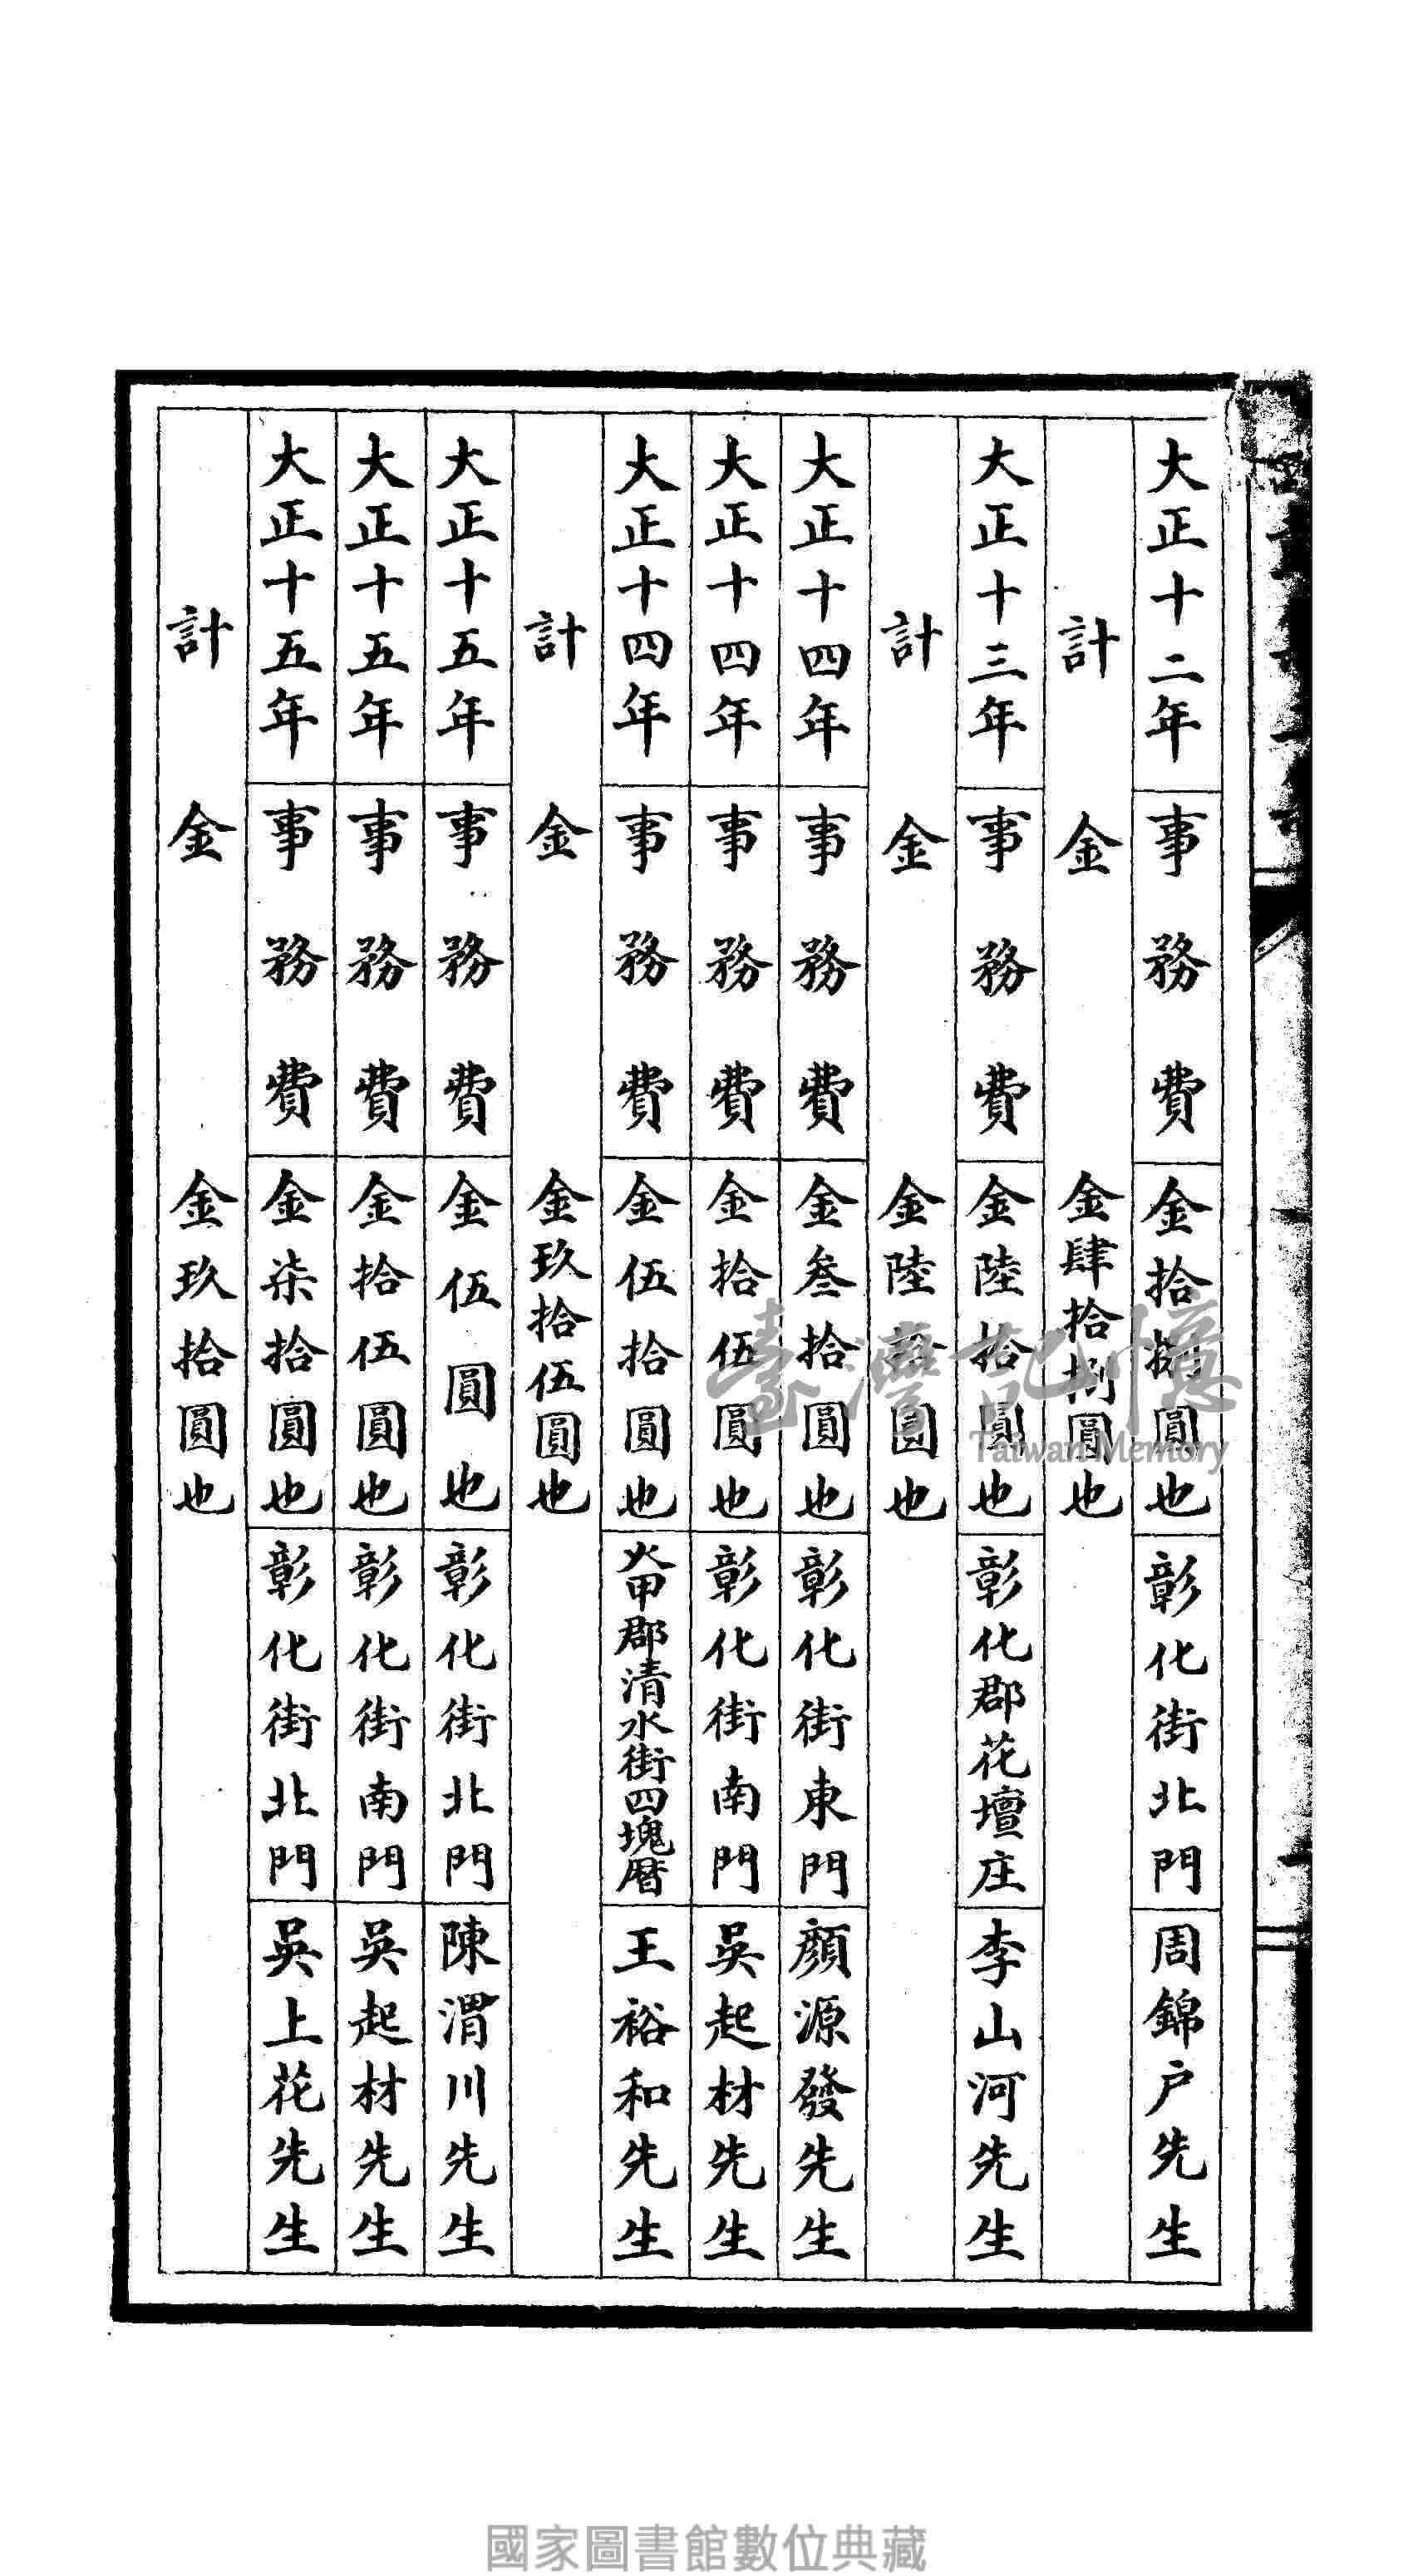 大正十二年 事務費 金拾捌圓也 彰化街北門 周錦户先生
計 金 金肆拾捌圓也
大正十三年 事務費 金陸拾圓也 彰化郡花壇庄 李山河先生
計 金 金陸拾圓也
大正十四年 事務費 金叁拾圓也 彰化街東門 顏源發先生
大正十四年 事務費 金拾伍圓也 彰化街南門 吳起材先生
大正十四年 事務費 金伍拾圓也 大甲郡清水街四塊厝 王裕和先生
計 金 金玖拾伍圓也
大正十五年 事務費 金伍圓也 彰化街北門 陳渭川先生
大正十五年 事務費 金拾伍圓也 彰化街南門 吳起材先生
大正十五年 事務費 金柒拾圓也 彰化街北門 吳上花先生
計 金 金玖拾圓也
臺灣記憶
Taiwan Memory
國家圖書館數位典藏